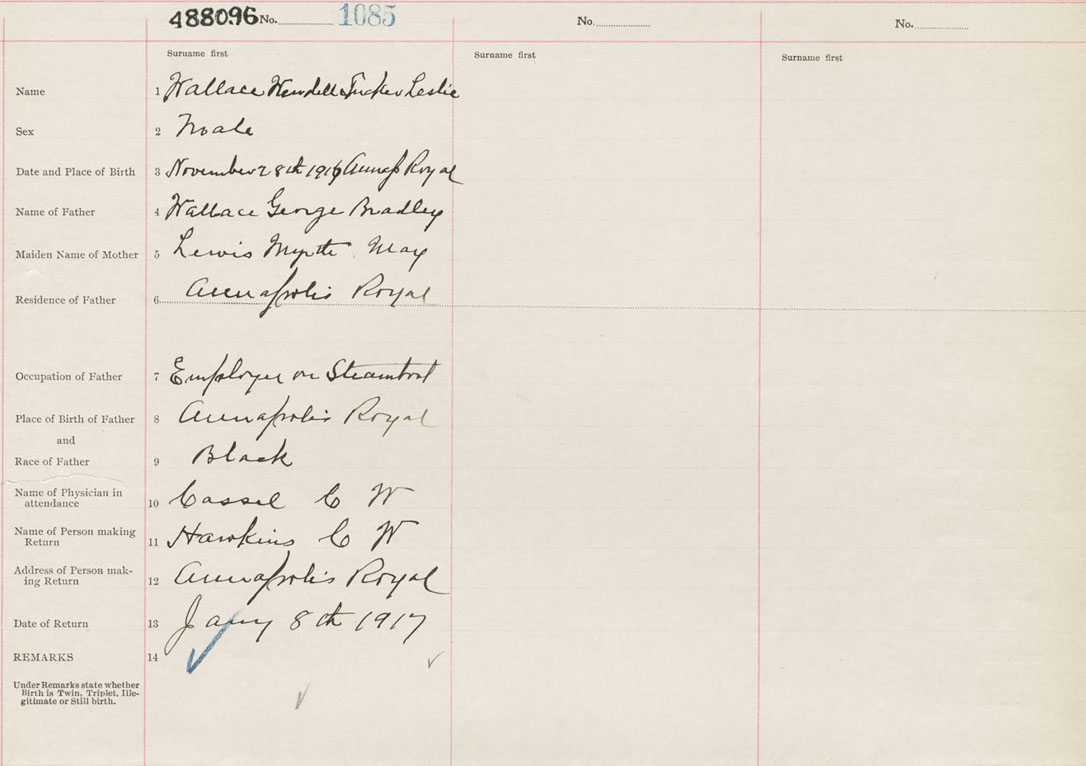 488096 No. 1085 No. No.
Surname first Surname first Surname first
Name 1 Wallace Wendell Tucker Leslie
Sex 2 Male
Date and Place of Birth 3 November 28th 1916 Annap Royal
Name of Father 4 Wallace George Bradley
Maiden Name of Mother 5 Lewis Myrtle May
Residence of Father 6 Annapolis Royal
Occupation of Father 7 Employee on Steamboat
Place of Birth of Father 8 Annapolis Royal
and
Race of Father 9 Black
Name of Physician in
attendance 10 Cassel C W
Name of Person making
Return 11 Hawkins C W
Address of Person mak-
ing Return 12 Annapolis Royal
Date of Return 13 Jany 8th 1917
REMARKS 14
Under Remarks state whether
Birth is Twin, Triplet, Ille-
gitimate or Still birth.